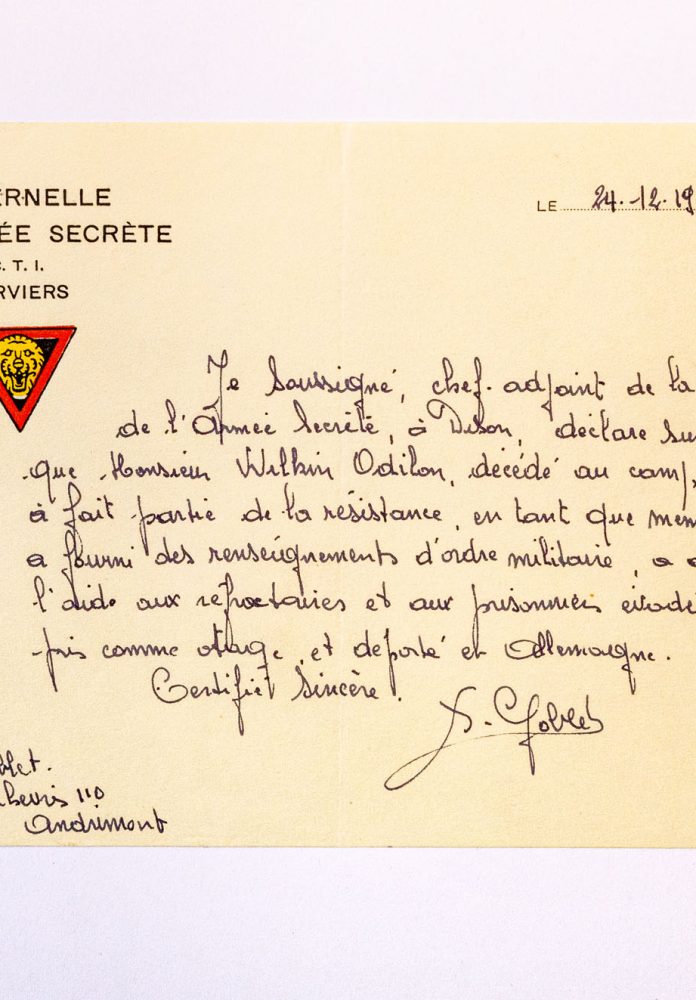 ERNELLE
ÉE SECRÈTE
C. T. I.
RVIERS
LE 24.-12.19
Je Soussigné, chef adjoint de la
de l'Armée Secrète, à Dison, déclare su
que Monsieur Wilkin Odilon, décédé au camp,
à fait partie de la résistance, en tant que mem
a fourni des renseignements d'ordre militaire, a
l'aide aux réfractaires et aux prisonniers évadé
pris comme otage et déporté en Allemagne.
Certifié Sincère.
Goblet
blet.
110
Andrimont